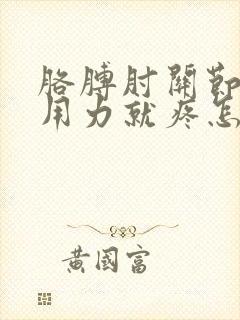 胳膊肘關節
用力就疼怎
黃國富